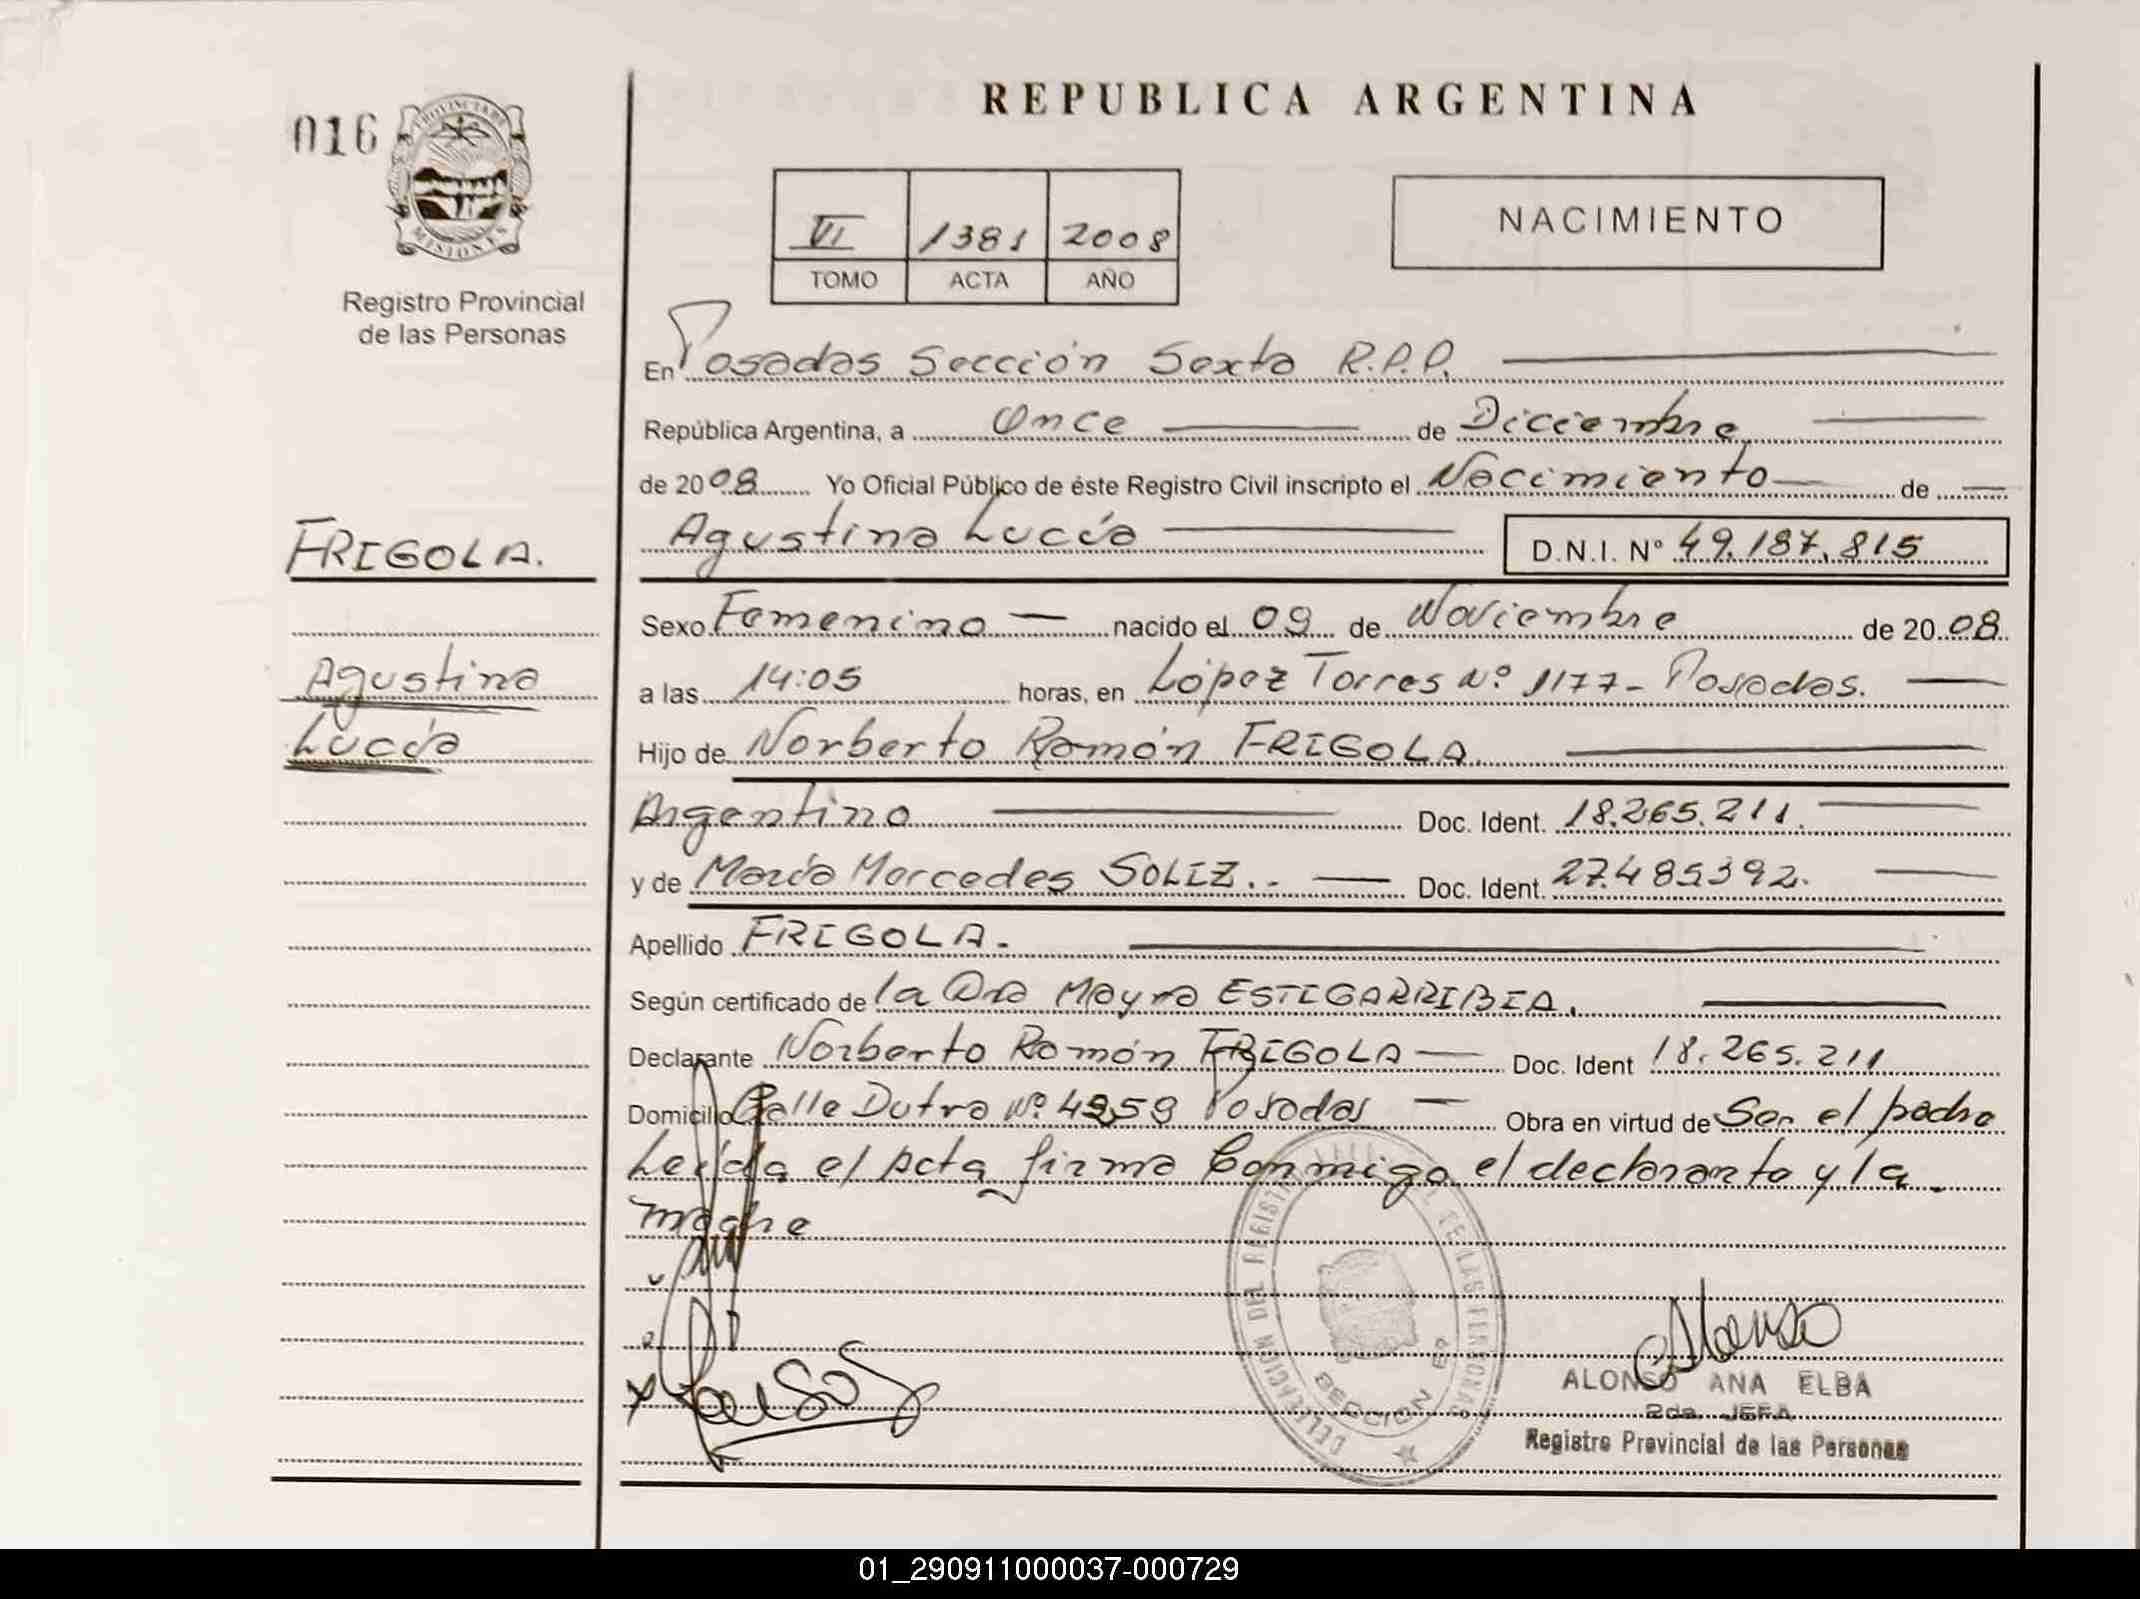 REPUBLICA ARGENTINA
016
PROVINCIA DE
MISIONES
Registro Provincial
de las Personas
VI 1381 2008
TOMO ACTA AÑO
NACIMIENTO
En Posadas Sección Sexta R.P.P.
República Argentina, a Once de Diciembre
de 2008 Yo Oficial Público de éste Registro Civil inscripto el Nacimiento de
FRIGOLA.
Agustina Lucía D.N.I. N° 49.187.815
Sexo Femenino nacido el 09 de Noviembre de 2008
Agustina
a las 14:05 horas, en López Torres Nº 1177- Posadas.
Lucía
Hijo de Norberto Ramón FRIGOLA.
Argentino Doc. Ident. 18.265.211.
y de María Mercedes SOLIZ.- Doc. Ident. 27.485392.
Apellido FRIGOLA.
Según certificado de la Dra Mayra ESTIGARRIBIA.
Declarante Norberto Ramón FRIGOLA Doc. Ident 18.265.211
Domicilio Calle Dutra Nº Posadas Obra en virtud de Ser el padre
Leída el Acta firma Conmigo el declarante y la
madre
DELEGACION DEL REGISTRO DE LAS PERSONAS
SECCION 6a
Alonso
ALONSO ANA ELBA
2da. JEFA
Registro Provincial de las Personas
01_290911000037-000729